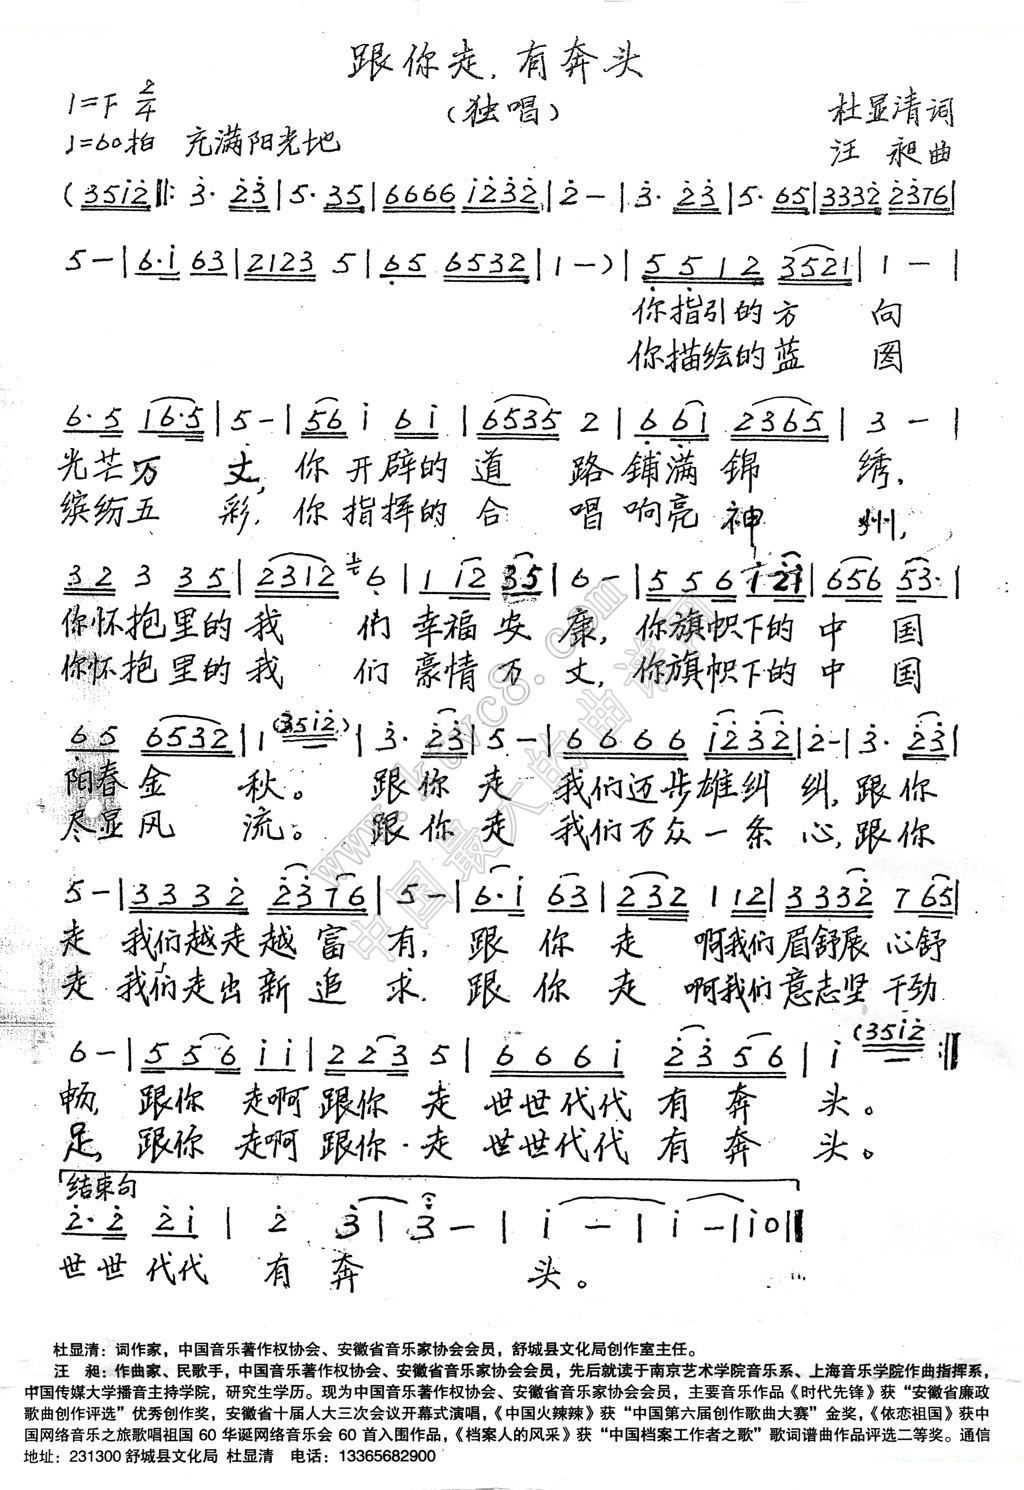 跟你走,有奔头
1=F 2/4
(独唱)
杜显清词
♩=60拍 充满阳光地
汪 昶曲
(351̇2̇‖: 3̇· 2̇3̇|5· 35|6666 1̇2̇3̇2̇|2̇ –|3̇· 2̇3̇|5· 65|3332̇ 2̇3̇76|
5 –|6·1̇ 63|2123 5|65 6532|1 –)|5512 3521|1 –|
你指引的方 向
你描绘的蓝 图
6·5 16·5|5 –|56 1̇ 61̇|6535 2|661 2365|3 –|
光芒万 丈,你开辟的道 路铺满锦 绣,
缤纷五 彩,你指挥的合 唱响亮神 州,
32 3 35|2312 6|1 12 35|6 –|556 1̇2̇1̇|656 53·|
你怀抱里的我 们幸福安 康,你旗帜下的中 国
你怀抱里的我 们豪情万 丈,你旗帜下的中 国
65 6532|1 (351̇2̇)|3̇· 2̇3̇|5 –|6666 1̇2̇3̇2̇|2̇ –|3̇· 2̇3̇|
阳春金 秋。 跟你 走 我们迈步雄纠 纠,跟你
尽显风 流。 跟你 走 我们万众一条 心,跟你
5 –|3332̇ 2̇3̇76|5 –|6·1̇ 63|232 112|3332̇ 765|
走 我们越走越富 有, 跟 你 走 啊我们眉舒展 心舒
走 我们走出新追 求. 跟 你 走 啊我们意志坚 干劲
6 –|556 1̇1̇|223 5|6661̇ 2̇3̇56|1̇ (351̇2̇ :‖
畅, 跟你 走啊跟你 走 世世代代 有 奔 头。
足, 跟你 走啊跟你·走 世世代代 有 奔 头。
结束句
2̇·2̇ 2̇1̇|2̇ 3̇|3̇ –|1̇ –|1̇ –|1̇0‖
世世代代 有 奔 头。
www.ktvc8.com
中国最大的曲谱网
杜显清：词作家，中国音乐著作权协会、安徽省音乐家协会会员，舒城县文化局创作室主任。
汪 昶：作曲家、民歌手，中国音乐著作权协会、安徽省音乐家协会会员，先后就读于南京艺术学院音乐系、上海音乐学院作曲指挥系，
中国传媒大学播音主持学院，研究生学历。现为中国音乐著作权协会、安徽省音乐家协会会员，主要音乐作品《时代先锋》获“安徽省廉政
歌曲创作评选”优秀创作奖，安徽省十届人大三次会议开幕式演唱，《中国火辣辣》获“中国第六届创作歌曲大赛”金奖，《依恋祖国》获中
国网络音乐之旅歌唱祖国 60 华诞网络音乐会 60 首入围作品，《档案人的风采》获“中国档案工作者之歌”歌词谱曲作品评选二等奖。通信
地址：231300 舒城县文化局 杜显清 电话：13365682900